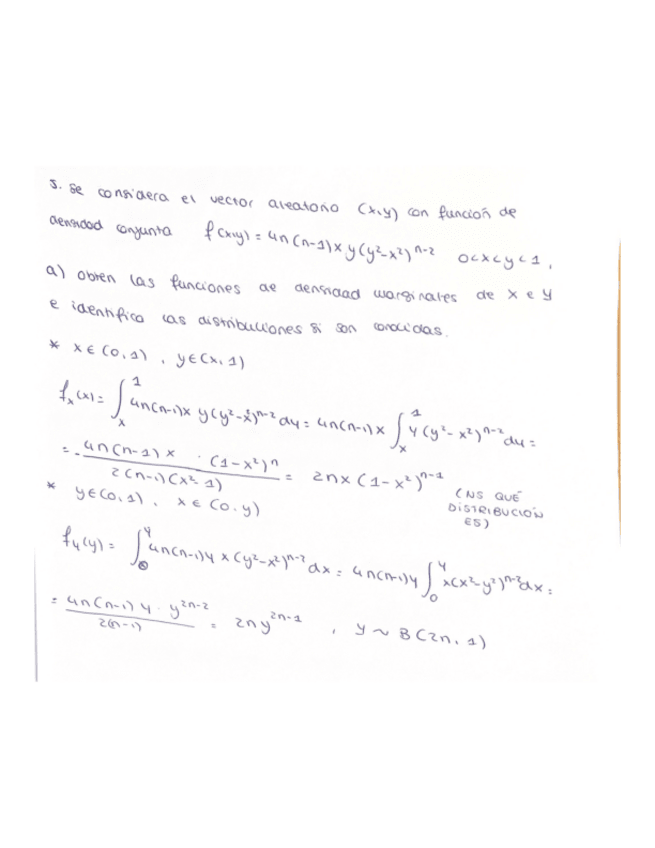 5. Se considera el vector aleatorio (X,Y) con función de
densidad conjunta f(x,y) = 4n(n-1)x y(y²-x²)ⁿ⁻² 0<x<y<1,
a) obten las funciones de densidad marginales de X e Y
e identifica las distribuciones si son conocidas.
* x ∈ (0,1), y ∈ (x,1)
fₓ(x) = ∫ₓ¹ 4n(n-1)x y(y²-x²)ⁿ⁻² dy = 4n(n-1)x ∫ₓ¹ y(y²-x²)ⁿ⁻² dy =
= - 4n(n-1)x · (1-x²)ⁿ / 2(n-1)(x²-1) = 2nx(1-x²)ⁿ⁻¹ (NS QUÉ
DISTRIBUCIÓN
ES)
* y ∈ (0,1), x ∈ (0,y)
f_y(y) = ∫₀ʸ 4n(n-1)y x(y²-x²)ⁿ⁻² dx = 4n(n-1)y ∫₀ʸ x(x²-y²)ⁿ⁻² dx =
= 4n(n-1)y · y²ⁿ⁻² / 2(n-1) = 2ny²ⁿ⁻¹, Y ~ B(2n, 1)